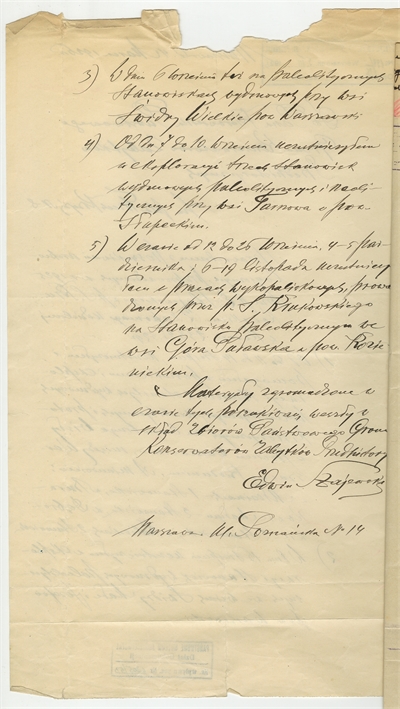 3) W dniu 6 Września też na paleolitycznych
Stanowiskach wydmowych przy wsi
Świdry Wielkie pow. Warszawski
4) Od dn. 7 do 10. września uczestniczyłem
w eksploracji trzech Stanowisk
wydmowych paleolitycznych i neoli-
tycznych przy wsi Tarnowa pow.
Słupeckim.
5) W czasie od 12 do 26 Września, 4-5 paź-
dziernika i 6-19 listopada uczestniczy-
łem w pracach wykopaliskowych, prowa-
dzonych przez p. S. Krukowskiego
na Stanowisku paleolitycznym we
wsi Góra Puławska pow. Kozie-
nickim.
Materyały zgromadzone w
czasie tych poszukiwań weszły w
skład Zbiorów Państwowego Grona
Konserwatorów Zabytków Przedhistor.
Edwin
Warszawa. Ul. No 14